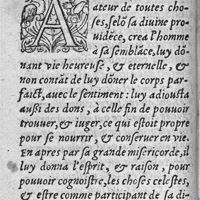 A ateur de toutes cho-
ses, selõ sa diuine pro-
uidẽce, crea l'homme
à sa semblãce, luy dõ-
nant vie heureuse, & eternelle, & 
non contãt de luy dõner le corps par-
faict, auec le sentiment: luy adiousta
aussi des dons, à celle fin de pouuoir
trouuer, & iuger, ce qui estoit propre
pour se nourrir, & conseruer en vie.
En apres par sa grande misericorde, il
luy donna l'esprit, & raison, pour
pouuoir cognoistre, les choses celestes,
& estre comme participant de sa di-